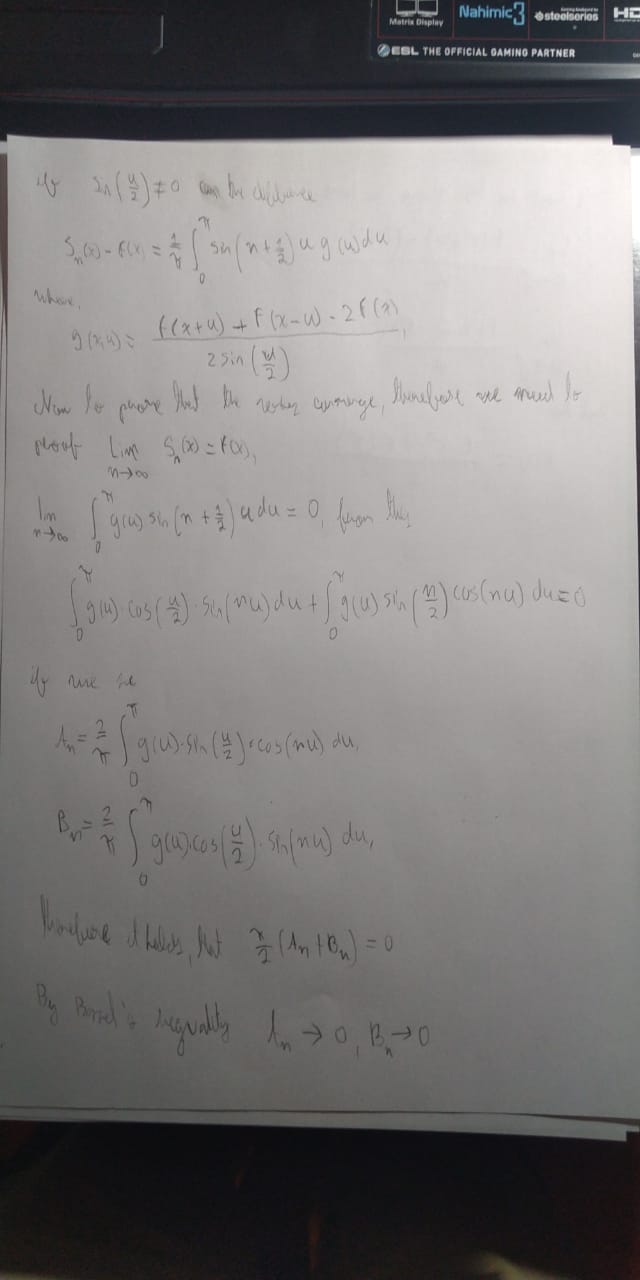 Matrix Display
Nahimic 3
steelseries
HD
ESL THE OFFICIAL GAMING PARTNER
if Sin(u/2) ≠ 0 can the difference
S_n(x) - f(x) = 1/π ∫_0^π sin(n + 1/2) u g(u) du
where,
g(x,u) = (f(x+u) + f(x-u) - 2f(x)) / (2 sin(u/2)),
Now to prove that the converge, therefore we need to
proof Lim n→∞ S_n(x) = f(x),
lim n→∞ ∫_0^π g(u) sin(n + 1/2) u du = 0, from this
∫_0^π g(u)·cos(u/2)·sin(nu) du + ∫_0^π g(u) sin(u/2) cos(nu) du = 0
if we
A_n = 2/π ∫_0^π g(u)·sin(u/2)·cos(nu) du,
B_n = 2/π ∫_0^π g(u)·cos(u/2)·sin(nu) du,
therefore it holds, that π/2 (A_n + B_n) = 0
By Bessel's inequality A_n → 0, B_n → 0